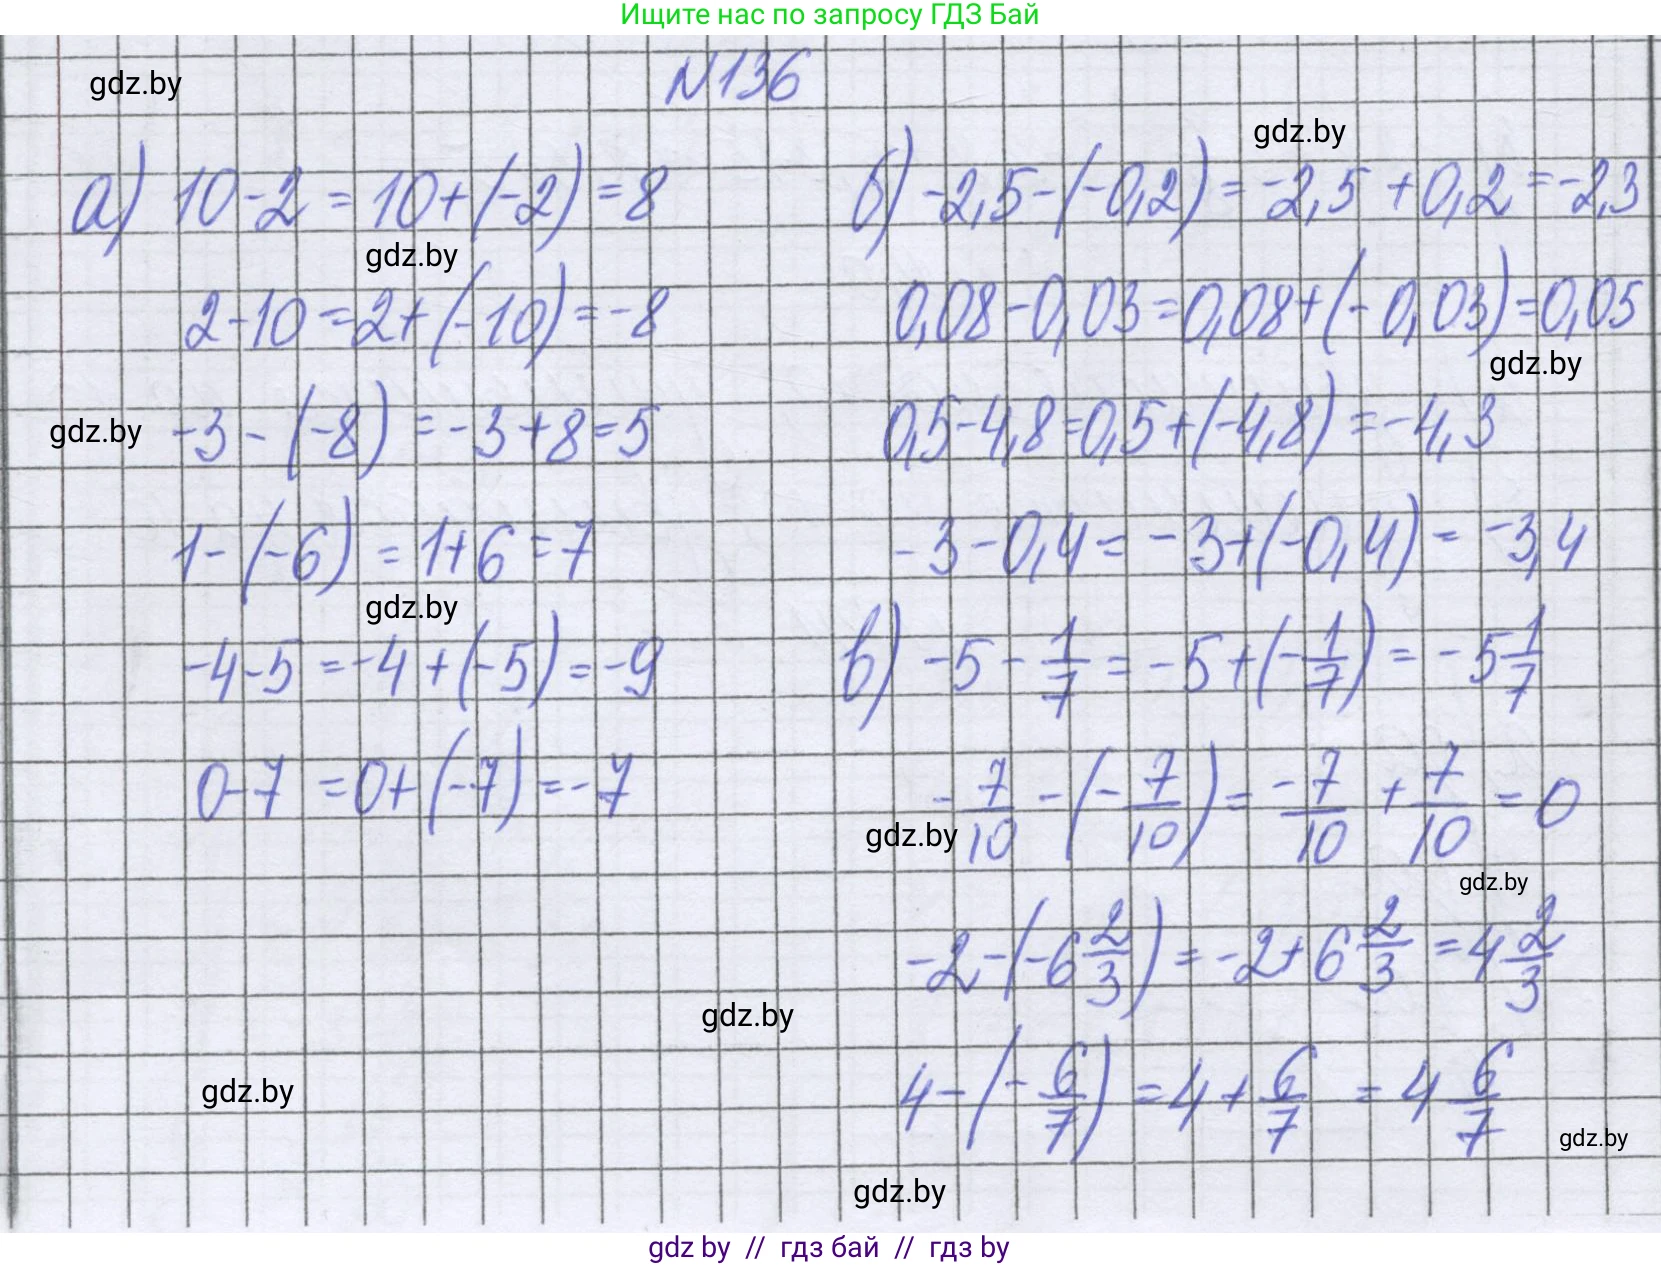 Ищите нас по запросу ГДЗ Бай
N136
gdz.by
gdz.by
а) 10-2=10+(-2)=8
gdz.by
2-10=2+(-10)=-8
gdz.by
-3-(-8)=-3+8=5
1-(-6)=1+6=7
gdz.by
-4-5=-4+(-5)=-9
0-7=0+(-7)=-7
б) -2,5-(-0,2)=-2,5+0,2=-2,3
0,08-0,03=0,08+(-0,03)=0,05
gdz.by
0,5-4,8=0,5+(-4,8)=-4,3
-3-0,4=-3+(-0,4)=-3,4
в) -5-1/7=-5+(-1/7)=-5 1/7
-7/10-(-7/10)=-7/10+7/10=0
gdz.by
gdz.by
-2-(-6 2/3)=-2+6 2/3=4 2/3
gdz.by
4-(-6/7)=4+6/7=4 6/7
gdz.by
gdz.by
gdz.by
gdz by // гдз бай // гдз by